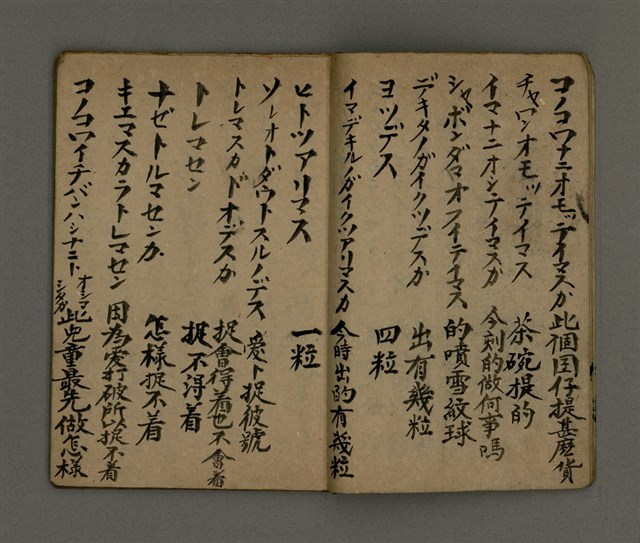 コノコワナニオモッテイマスカ 此個囝仔提甚麽貨
チャワンオモッテイマス 茶碗提的
イマナニオシテイマスカ 今刻的做何事嗎
シャボンダマオフイテイマス 的噴雪紋球
デキタノガイクツデスカ 出有幾粒
ヨツデス 四粒
イマデキルノガイクツアリマスカ 今時出的有幾粒
ヒトツアリマス 一粒
ソレオトダウトスルノデス 愛卜捉彼號
トレマスカドオデスカ 捉會得着也不會着
トレマセン 捉不得着
ナゼトルマセンカ 怎樣捉不着
キエマスカラトレマセン 因為愛打破所以捉不着
コノコワイチバンハシナニト オシマシタカ 此兒童最先做怎樣